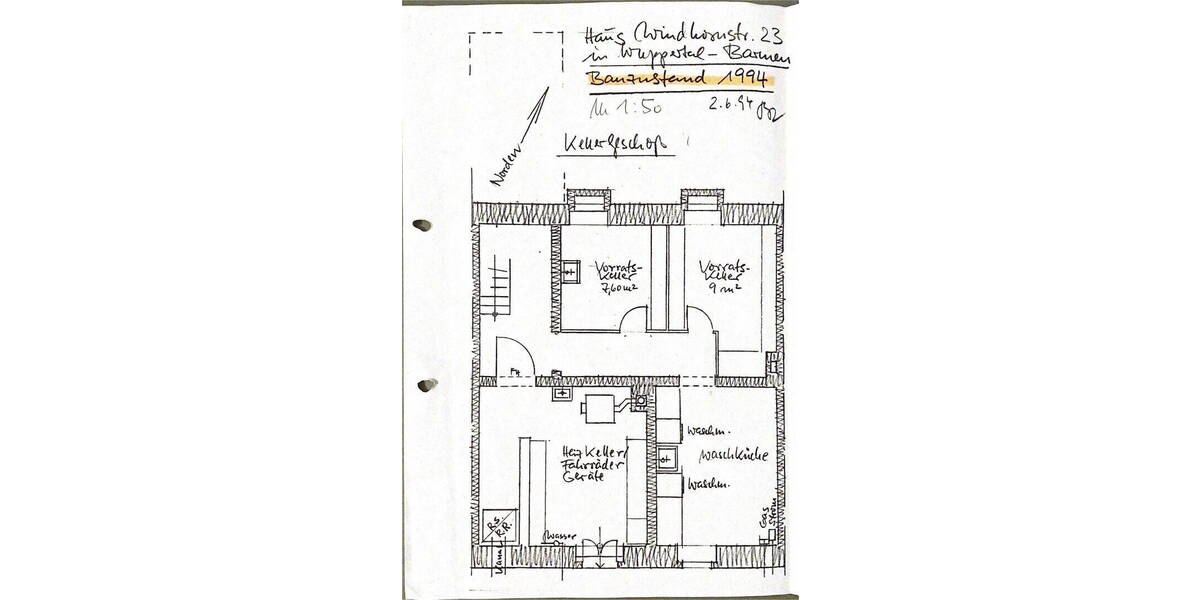 Haus Windhornstr. 23
in Wuppertal-Barmen
Bauzustand 1994
M 1:50
2.6.94
Norden
Kellergeschoß
Vorrats-
keller
7,60 m²
Vorrats-
keller
9 m²
FH
Heizkeller/
Fahrräder
Geräte
Waschm.
Waschküche
Waschm.
Rs.
R.R.
Kanal
Wasser
Gas
Strom